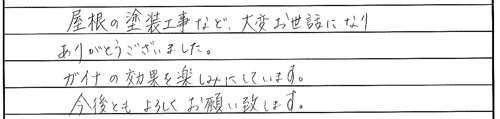 屋根の塗装工事など、大変お世話になり
ありがとうございました。
ガイナの効果を楽しみにしています。
今後ともよろしくお願い致します。